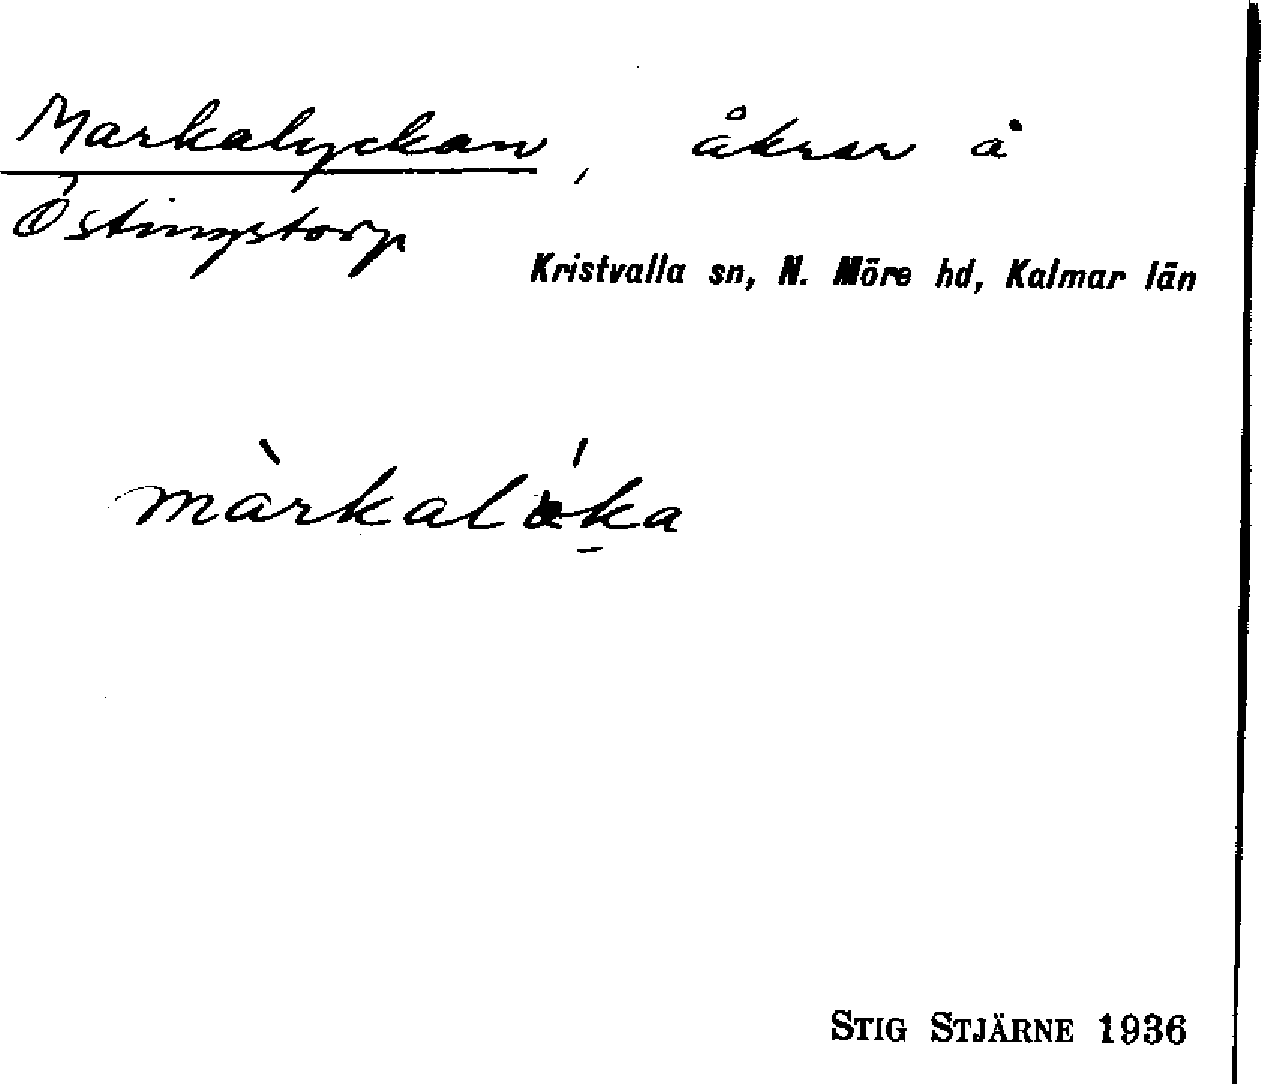 Markalyckan, åkrar å
Östingstorp
Kristvalla sn, N. Möre hd, Kalmar län
STIG STJÄRNE 1936